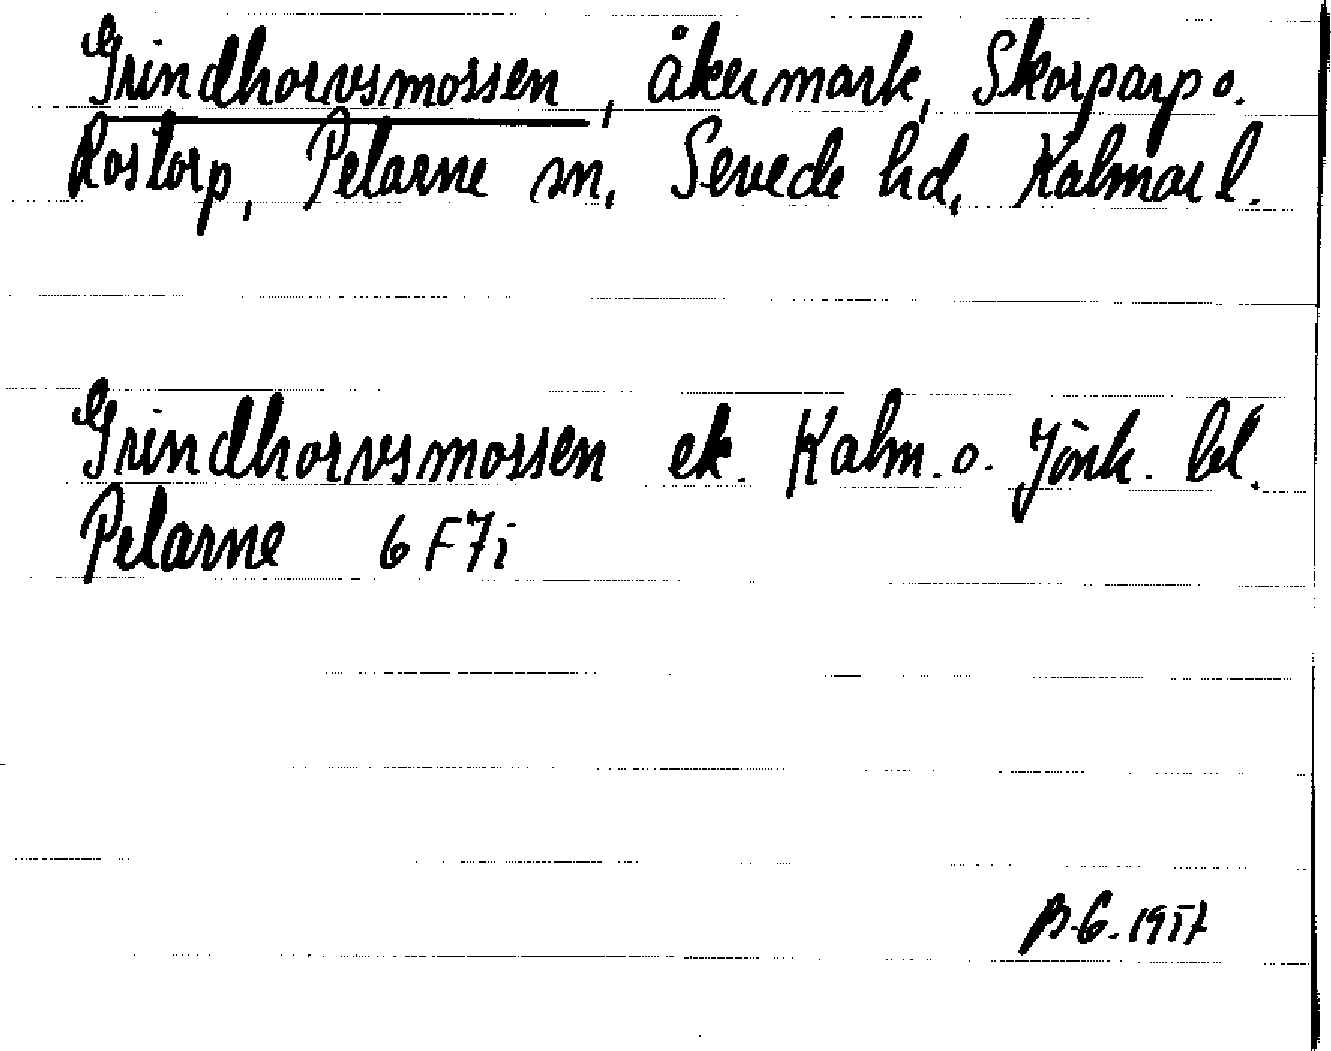 Grindhorvsmossen, åkermark, Skorparp o.
Rostorp, Pelarne sn, Sevede hd, Kalmar l.
Grindhorvsmossen ek. Kalm. o. Jönk. bl.
Pelarne 6 F 7i
B.G. 1957